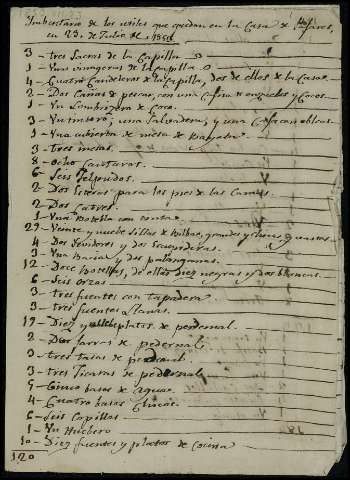 Inbentario de los utiles que quedan en la Casa de
en 23. de Julio de
3 - tres Sacras de la Capilla
1 - Una vinagrera de la Capilla
4 - Cuatro Candeleros de la Capilla, dos de ellos de la Casa
2 - Dos Cañas de pescar, con una de anzuelos y Cocos
1 - Un de Coco.
3 - Un tintero, una Salvadera, y una
1 - Una cubierta de mesa de Bayeta
3 - Tres mesas
8 - Ocho Canturas.
6 - Seis Felpudos
2 - Dos Esteras para los pies de las Camas.
2 - Dos Catres.
1 - Una Botella con
29 - Veinte y nueve Sillas de Bilbao, grandes y chicas
4 - Dos Tenedores y dos
3 - Una Bacia y dos palanganas.
12 - Doce Botellas, de ellas diez negras y dos blancas.
6 - Seis orzas
3 - tres fuentes con tapadera
3 - tres fuentes Llanas.
19 - Diez y nuebe platos de pedernal.
2 - Dos Jarras de pedernal
3 - tres tasas de pedernal
3 - tres Jicaras de pedernal
5 - Cinco basos de aguas
4 - Cuatro basos Chicos.
6 - Seis Copillas
1 - Un Huebero
10 - Diez fuentes y platos de Cocina
120